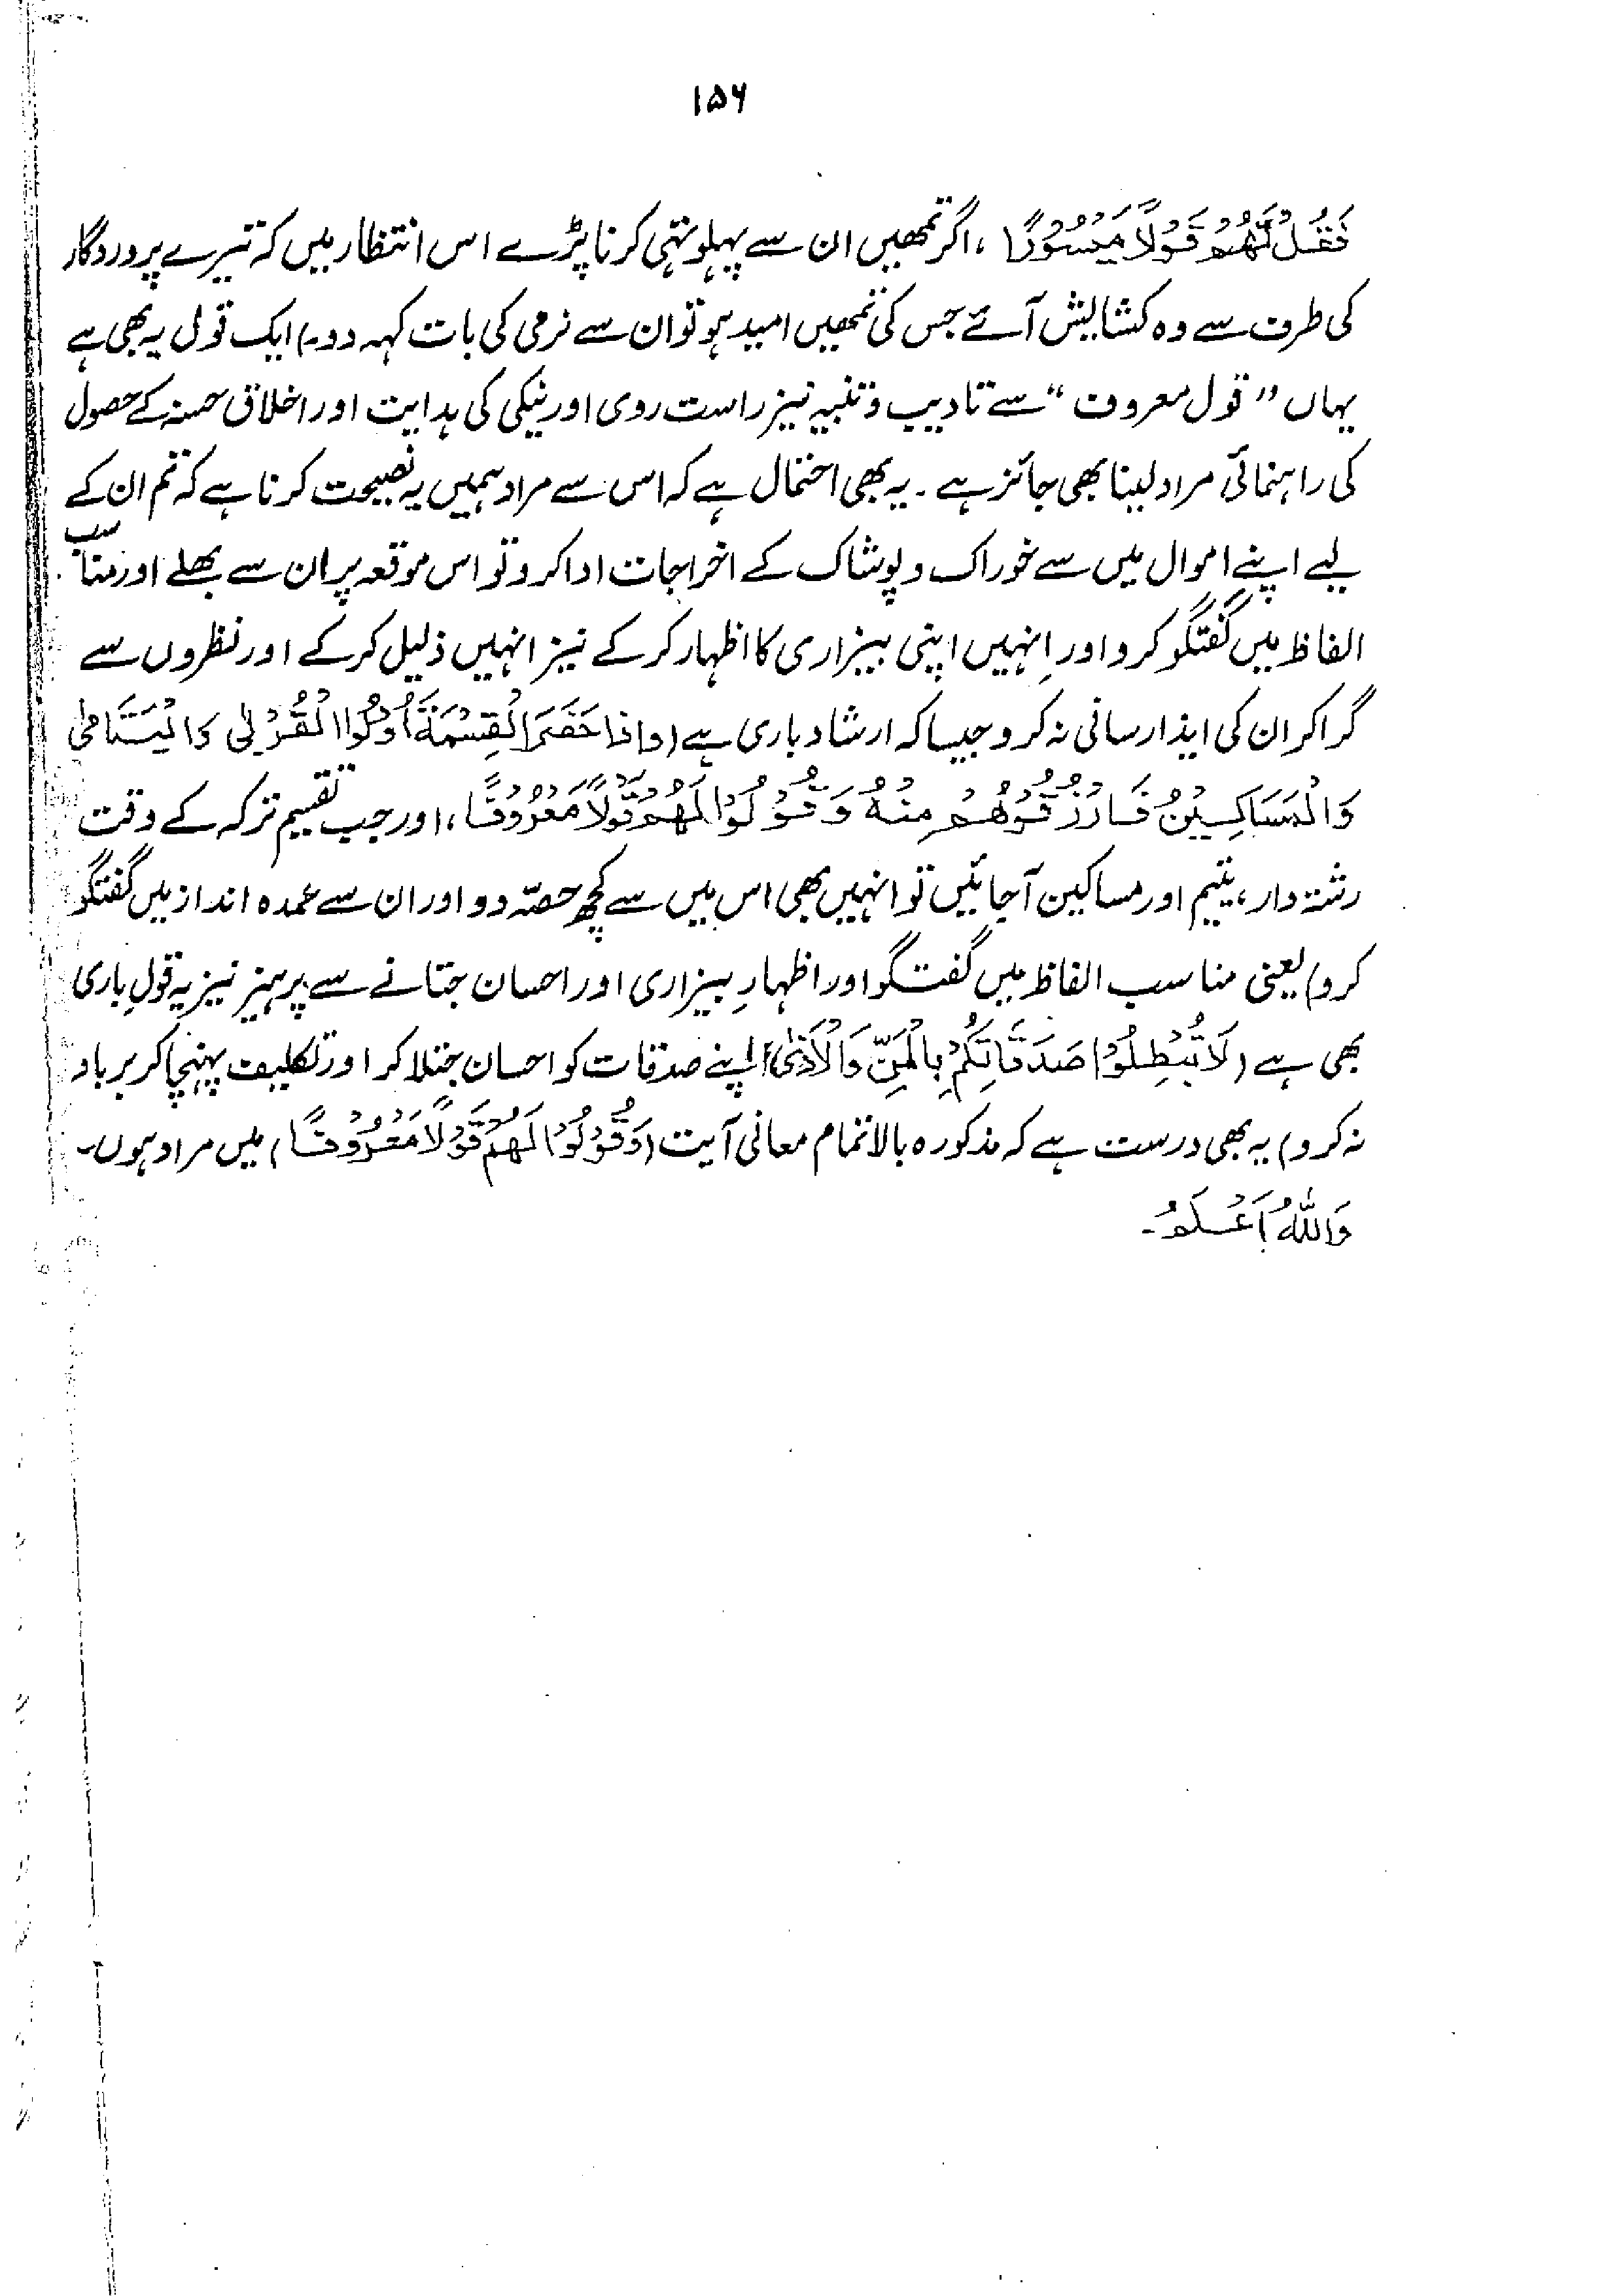 ۱۵۶
فَقُلْ لَّهُمْ قَوْلًا مَيْسُوْرًا ، اگر تمھیں ان سے پہلو تہی کرنا پڑے اس انتظار میں کہ تیرے پروردگار
کی طرف سے وہ کشایش آئے جس کی تمھیں امید ہو تو ان سے نرمی کی بات کہہ دو۔) ایک قول یہ بھی ہے
یہاں ”قول معروف“ سے تادیب و تنبیہ نیز راست روی اور نیکی کی ہدایت اور اخلاق حسنہ کے حصول
کی راہنمائی مراد لینا بھی جائز ہے ۔ یہ بھی احتمال ہے کہ اس سے مراد ہمیں یہ نصیحت کرنا ہے کہ تم ان کے
لیے اپنے اموال میں سے خوراک و پوشاک کے اخراجات ادا کرو تو اس موقعہ پر ان سے بھلے اور مناسب
الفاظ میں گفتگو کرو اور اِنہیں اپنی بیزاری کا اظہار کر کے نیز انہیں ذلیل کر کے اور نظروں سے
گرا کر ان کی ایذا رسانی نہ کرو جیسا کہ ارشاد باری ہے (وَاِذَا حَضَرَ الْقِسْمَةَ اُولُوا الْقُرْبٰى وَالْيَتَامٰى
وَالْمَسَاكِيْنُ فَارْزُقُوْهُمْ مِنْهُ وَقُوْلُوْا لَهُمْ قَوْلًا مَعْرُوْفًا ، اور جب تقسیم ترکہ کے وقت
رشتہ دار، یتیم اور مساکین آجائیں تو انہیں بھی اس میں سے کچھ حصّہ دو اور ان سے عمدہ انداز میں گفتگو
کرو) یعنی مناسب الفاظ میں گفتگو اور اظہارِ بیزاری اور احسان جتانے سے پرہیز نیز یہ قولِ باری
بھی ہے (لَا تُبْطِلُوْا صَدَقَاتِكُمْ بِالْمَنِّ وَالْاَذٰى۔ اپنے صدقات کو احسان جتلا کر اور تکلیف پہنچا کر برباد
نہ کرو) یہ بھی درست ہے کہ مذکورہ بالا تمام معانی آیت (وَقُوْلُوْا لَهُمْ قَوْلًا مَعْرُوْفًا) میں مراد ہوں۔
وَاللّٰهُ اَعْلَمُ ۔